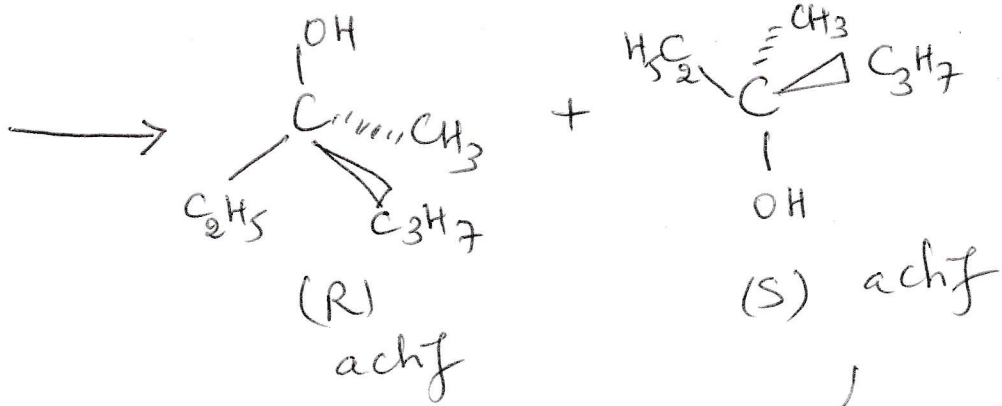 OH
C CH3
C2H5 C3H7
(R)
achf
+
CH3
H5C2 C C3H7
OH
(S) achf